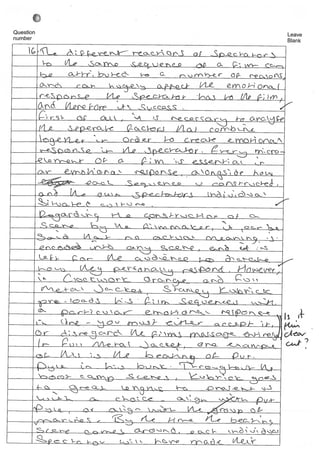 Question
number
Leave
Blank
16 The different reactions of Spectators
to the same sequence of a film can
be attributed to a number of reasons,
and can hugely affect the emotional
response the spectator has to the film,
and therefore its success.
First of all, it is necessary to analyse
the seperate factors that combine
together in order to create emotional
response in the spectator. Every micro-
element of a film is essential in
an emotional response, alongside how
each sequence is constructed,
and the own spectators individual
situated culture.
Regarding the construction of a
scene by the filmmaker, it can be
said that no actual meaning is
encoded into any scene, and it is
left for the audience to
how they personally respond. However,
in Clockwork Orange and Full
Metal Jacket Stanley Kubrick
pre-loads his film sequences with
a particular emotional response
in line - you must either accept it,
or disregard the films message entirely.
Is it
this
clear
cut?
In Full Metal Jacket, one example
of this is the beating of Pvt.
Pyle in his bunk. Throughout the
boot camp scenes, Kubrick goes
to great lengths to present us
with a choice - align with Pvt
Pyle, or align with the group of
marines. By the time the beating
scene comes around, each individual
Spectator will have made their